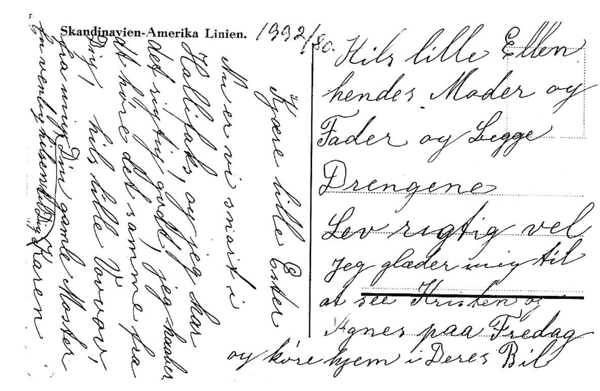 Skandinavien-Amerika Linien.
1992/80.
Kjære lille Ester
Nu er vi snart i
Hallifaks, og jeg har
det rigtig godt, jeg haaber
at høre det samme fra
Dig, hils lille Vovvov,
fra mig Din gamle Moster
Karen
Hils lille Ellen
hendes Moder og
Fader og Begge
Drengene
Lev rigtig vel
Jeg glæder mig til
at see Kristen og
Agnes paa Fredag
og køre hjem i Deres Bil